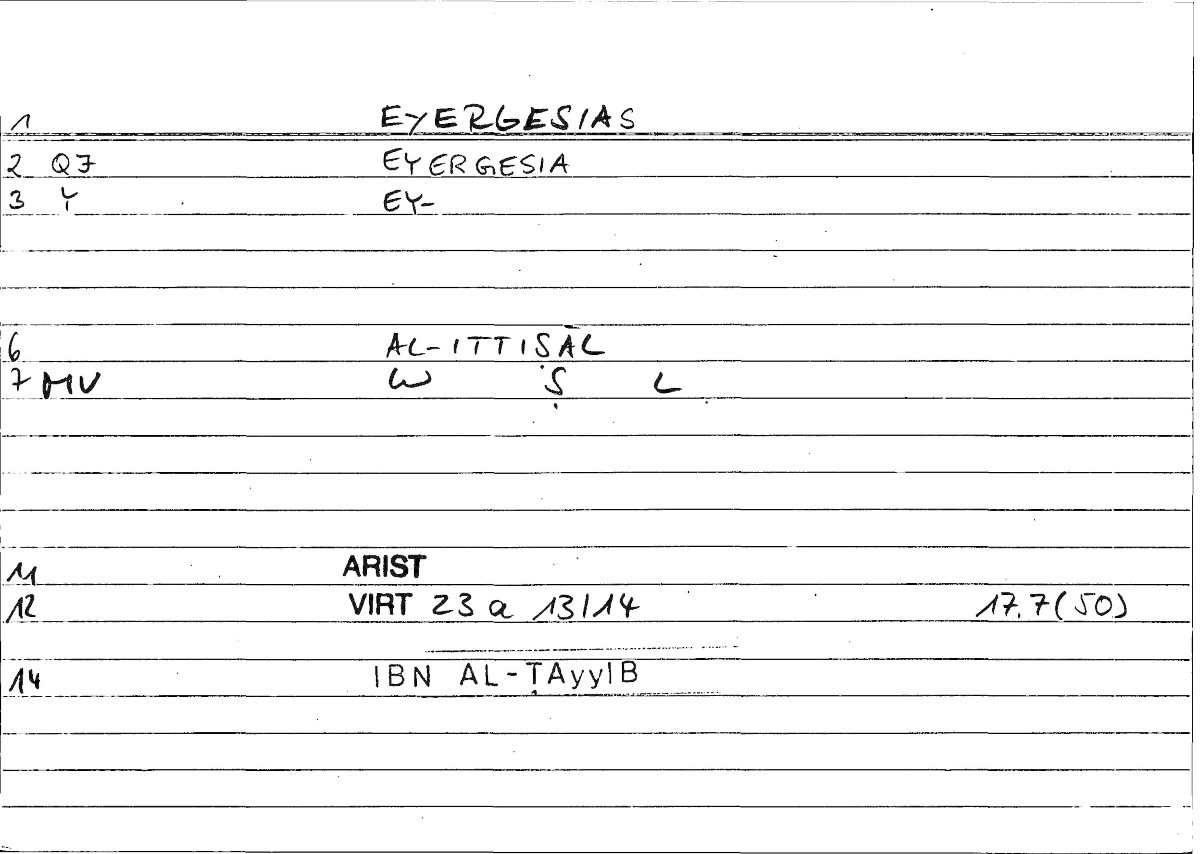 1 EYERGESIAS
2 Q7 EYERGESIA
3 Y EY-
6 AL-ITTIṢĀL
7 MV W Ṣ L
11 ARIST
12 VIRT 23 a 13/14 17.7(50)
14 IBN AL-ṬAyyIB